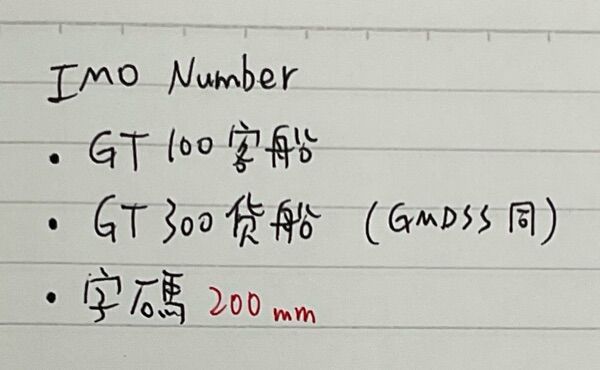 IMO Number
• GT 100 客船
• GT 300 货船 (GMDSS 同)
• 字碼 200 mm